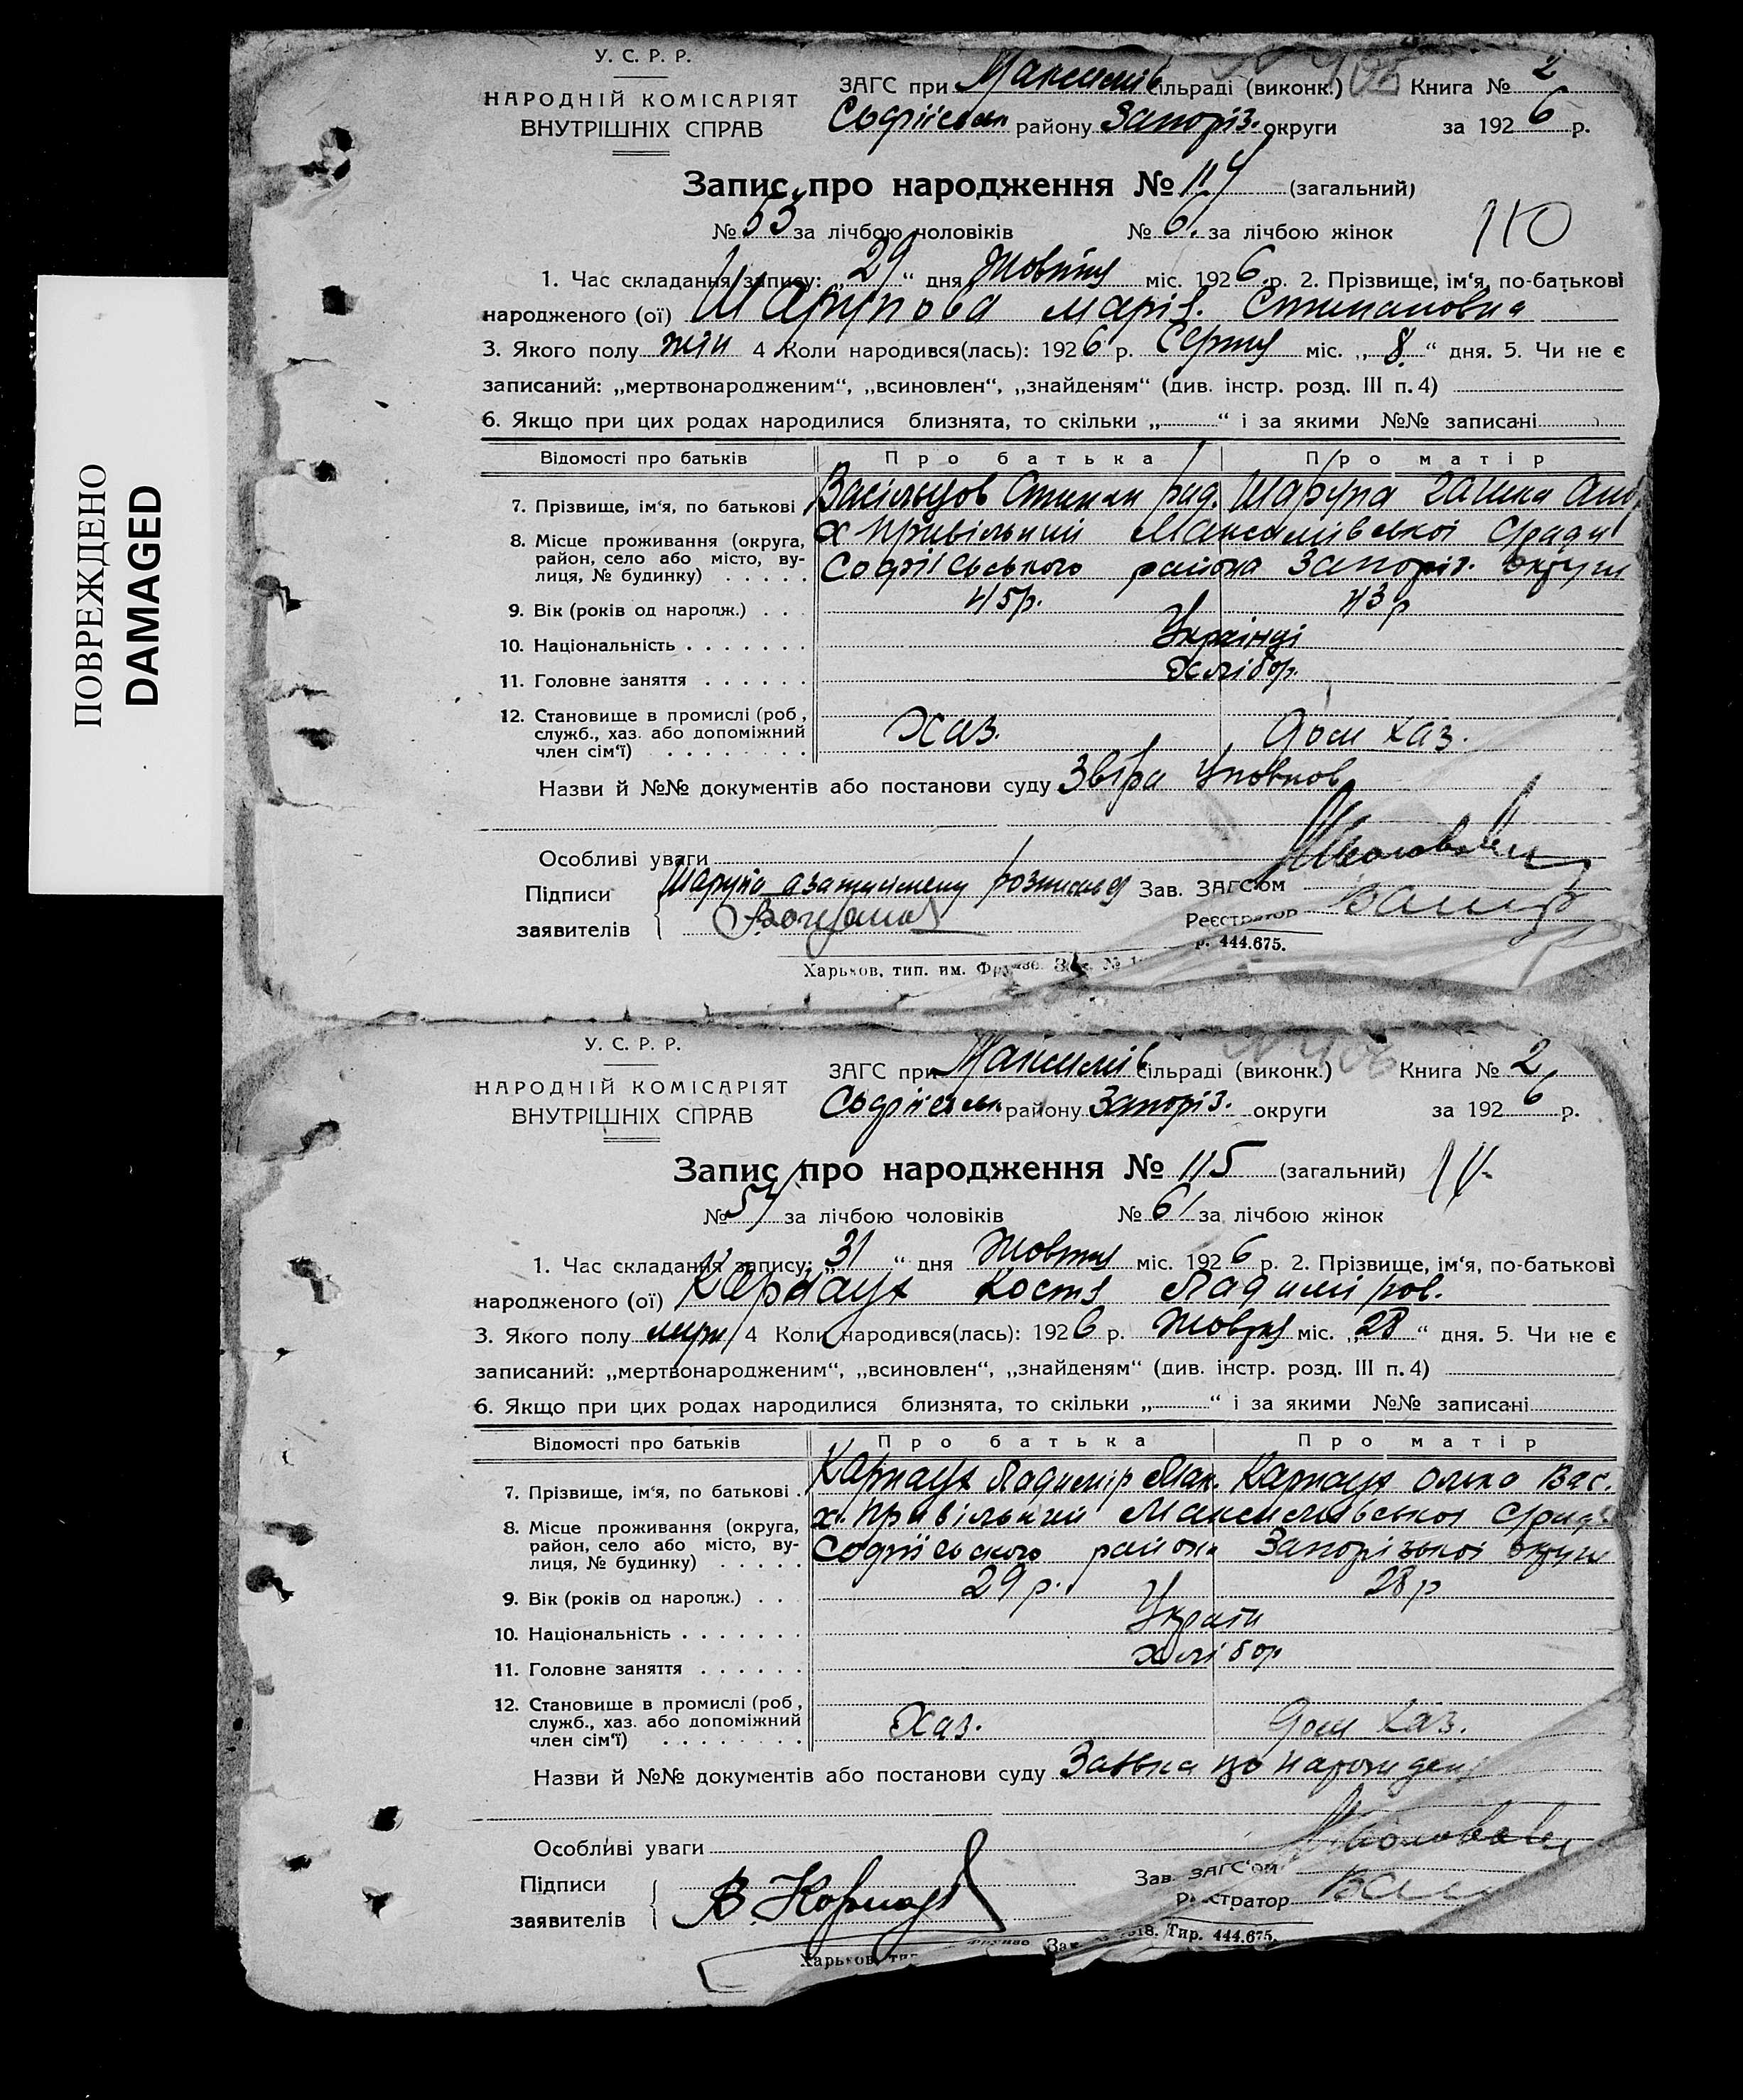 ПОВРЕЖДЕНО
DAMAGED
У. С. Р. Р.
НАРОДНІЙ КОМІСАРІЯТ
ВНУТРІШНІХ СПРАВ
ЗАГС при Максимів сільраді (виконк.) Книга № 2
Софіївськ району Запоріз. округи за 1926 р.
Запис про народження № 114 (загальний)
№ 53 за лічбою чоловіків № 61 за лічбою жінок
110
1. Час складання запису: „29“ дня Жовтня міс. 1926 р. 2. Прізвище, ім‘я, по-батькові
народженого (ої) Шарупова Марія Степановна
3. Якого полу жін 4 Коли народився(лась): 1926 р. Серпня міс. „8“ дня. 5. Чи не є
записаний: „мертвонародженим“, „всиновлен“, „знайденям“ (див. інстр. розд. III п. 4)
6. Якщо при цих родах народилися близнята, то скільки „ “ і за якими №№ записані
Відомості про батьків Про батька Про матір
7. Прізвище, ім‘я, по батькові Степан Шарупа
8. Місце проживання (округа, район, село або місто, вулиця, № будинку) х Привільний Максимівської с/ради
Софіївського района Запоріз. округи
9. Вік (років од народж.) 45 р. 43 р
10. Національність Українці
11. Головне заняття Хлібор.
12. Становище в промислі (роб, служб., хаз. або допоміжний член сім‘ї) Хаз. Дом хаз.
Назви й №№ документів або постанови суду
Особливі уваги
Підписи
заявителів
Зав. ЗАГС‘ом
Реєстратор
р. 444.675.
Харьков, тип. им. Фрунзе. Зак. №
У. С. Р. Р.
НАРОДНІЙ КОМІСАРІЯТ
ВНУТРІШНІХ СПРАВ
ЗАГС при Максимів сільраді (виконк.) Книга № 2
Софіївськ району Запоріз. округи за 1926 р.
Запис про народження № 115 (загальний)
№ 54 за лічбою чоловіків № 61 за лічбою жінок
1. Час складання запису: „31“ дня Жовтня міс. 1926 р. 2. Прізвище, ім‘я, по-батькові
народженого (ої) Карнаух Костя Ладиміров.
3. Якого полу муж 4 Коли народився(лась): 1926 р. Жовтня міс. „28“ дня. 5. Чи не є
записаний: „мертвонародженим“, „всиновлен“, „знайденям“ (див. інстр. розд. III п. 4)
6. Якщо при цих родах народилися близнята, то скільки „ “ і за якими №№ записані
Відомості про батьків Про батька Про матір
7. Прізвище, ім‘я, по батькові Карнаух Ладимір Мак. Карнаух Олька Вас.
8. Місце проживання (округа, район, село або місто, вулиця, № будинку) х. Привільний Максимівської с/ради
Софіївського района Запорізької округи
9. Вік (років од народж.) 29 р. 28 р
10. Національність Украти
11. Головне заняття Хлібор
12. Становище в промислі (роб, служб., хаз. або допоміжний член сім‘ї) Хаз. Дом хаз.
Назви й №№ документів або постанови суду Заявка про народжен
Особливі уваги
Підписи
заявителів
В. Карнаух
Зав. ЗАГС‘ом
Реєстратор
Тир. 444.675.
Харьков, тип.